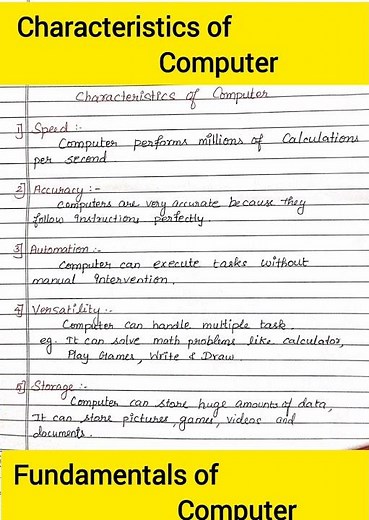 Characteristics of
Computer
Characteristics of Computer
1] Speed :-
Computer performs millions of Calculations
per second
2] Accuracy :-
Computers are very accurate because they
follow instructions perfectly.
3] Automation :-
Computer can execute tasks without
manual intervention.
4] Versatility :-
Computer can handle multiple task.
eg. It can solve math problems like calculator,
Play Games, Write & Draw.
5] Storage :-
Computer can store huge amounts of data,
It can store pictures, games, videos and
documents.
Fundamentals of
Computer